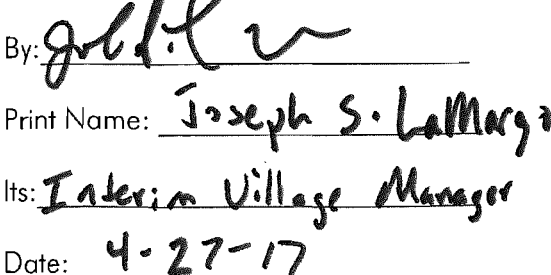 By:
Print Name: Joseph S. LaMargo
Its: Interim Village Manager
Date: 4-27-17